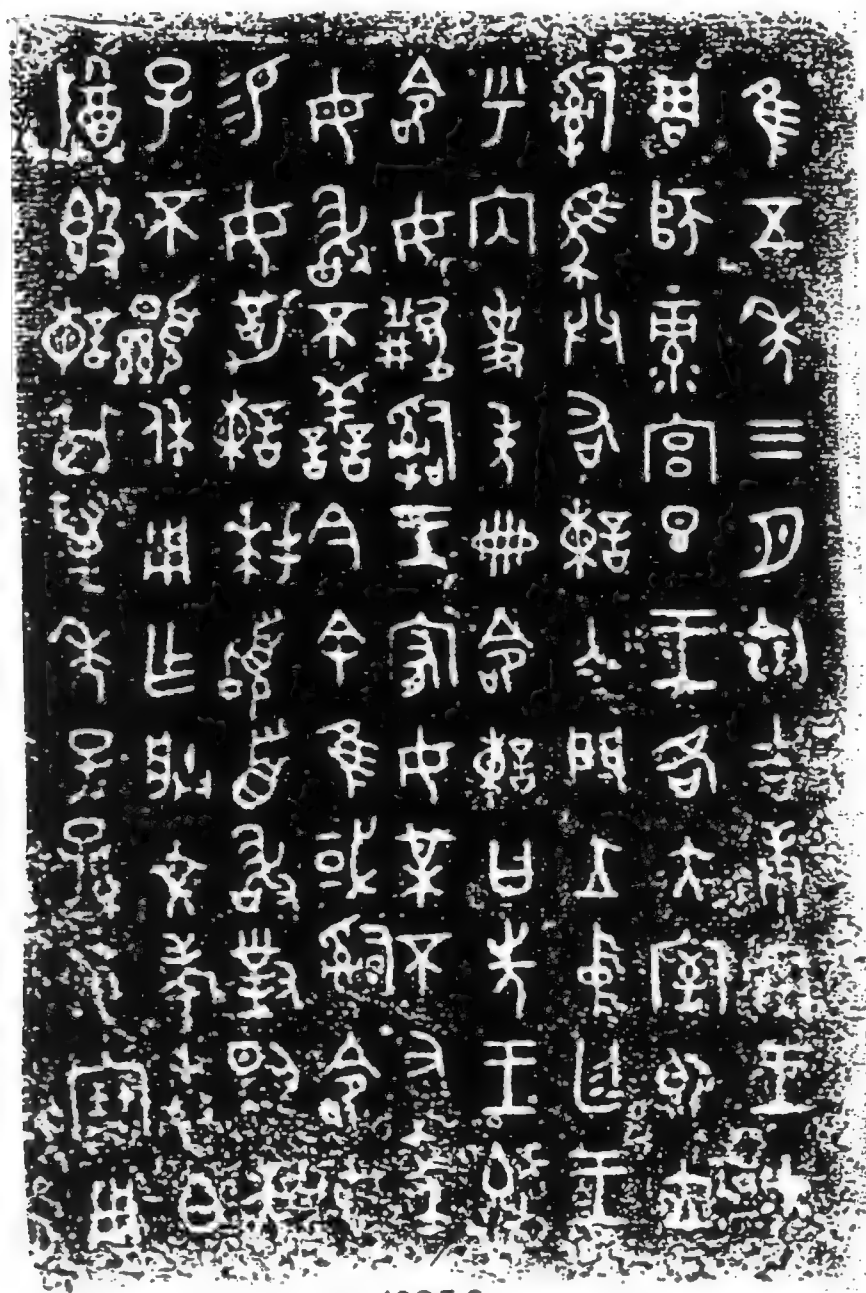 隹五年三月初吉庚寅王才
周師彔宮旦王各大室即立
𤔲馬共右諫入門立中廷王
乎內史先冊命諫曰先王既
命女䊷𤔲王宥女某不又聞
母敢不善今余隹或𤔲命女
易女勒諫拜𩒨首敢對揚天
子不顯休用乍朕文考叀白
尊簋諫其萬年子子孫孫永寶用